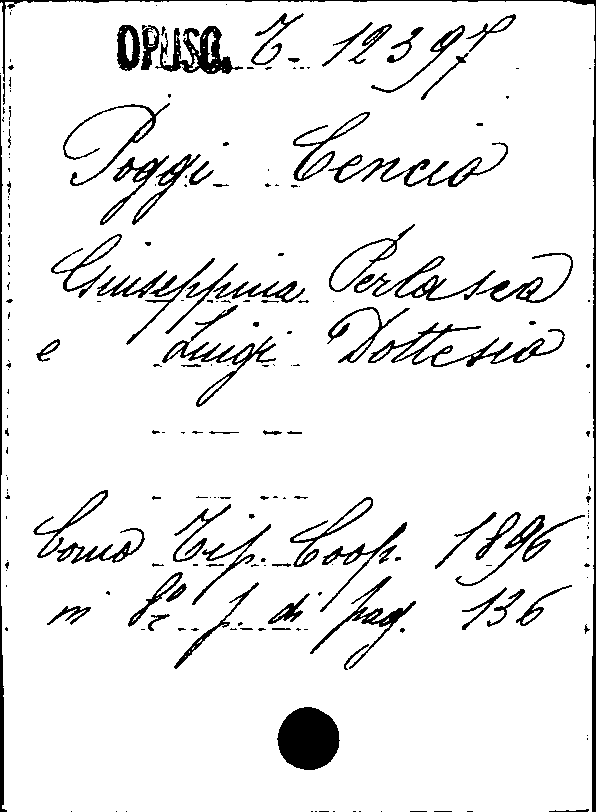 OPUSC. T- 12397
Poggi Cencio
Giuseppina Perlasca
e Luigi Dottesio
Como Tip. Coop. 1896
in 8º p. di pag. 136